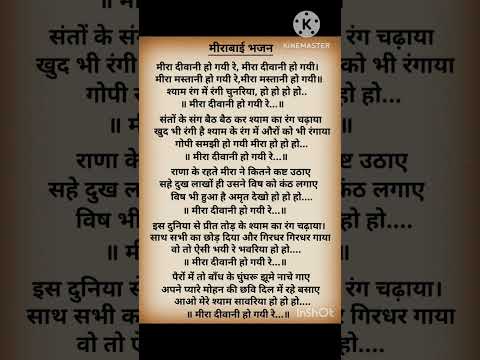 मीराबाई भजन
मीरा दीवानी हो गयी रे, मीरा दीवानी हो गयी।
मीरा मस्तानी हो गयी रे,मीरा मस्तानी हो गयी॥
श्याम रंग में रंगी चुनरिया, हो हो हो हो..
॥ मीरा दीवानी हो गयी रे...॥
संतों के संग बैठ बैठ कर श्याम का रंग चढ़ाया
खुद भी रंगी है श्याम के रंग में औरों को भी रंगाया
गोपी समझी हो गयी मीरा हो हो हो...
॥ मीरा दीवानी हो गयी रे...॥
राणा के रहते मीरा ने कितने कष्ट उठाए
सहे दुख लाखों ही उसने विष को कंठ लगाए
विष भी हुआ है अमृत देखो हो हो हो....
॥ मीरा दीवानी हो गयी रे...॥
इस दुनिया से प्रीत तोड़ के श्याम का रंग चढ़ाया।
साथ सभी का छोड़ दिया और गिरधर गिरधर गाया
वो तो ऐसी भयी रे भवरिया हो हो....
॥ मीरा दीवानी हो गयी रे...॥
पैरों में तो बाँध के घुंघरू झूमे नाचे गाए
अपने प्यारे मोहन की छवि दिल में रहे बसाए
आओ मेरे श्याम सावरिया हो हो हो....
॥ मीरा दीवानी हो गयी रे...॥
KINEMASTER
InShOt
संतों के स
खुद भी रंगी
गोपी
इस दुनिया स
साथ सभी का
वो तो
रंग चढ़ाया
भी रंगाया
हो...
॥
रंग चढ़ाया।
रधर गाया
हो....